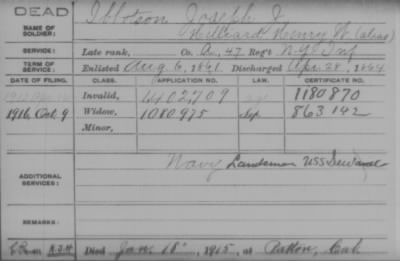 DEAD
NAME OF SOLDIER: Ibbotson Joseph J
Hilliard Henry W (alias)
SERVICE: Late rank, Co. A, 47 Reg't N.Y. Inf
TERM OF SERVICE: Enlisted Aug 6, 1861 Discharged Apr. 28, 1864
DATE OF FILING. CLASS. APPLICATION NO. CERTIFICATE NO.
Invalid, 1402,709 1180870
1916, Oct. 9 Widow, 1080975 863142
Minor,
ADDITIONAL SERVICES: Navy Landsman USS
REMARKS:
Died Jan. 18", 1915, at Patton, Cal.